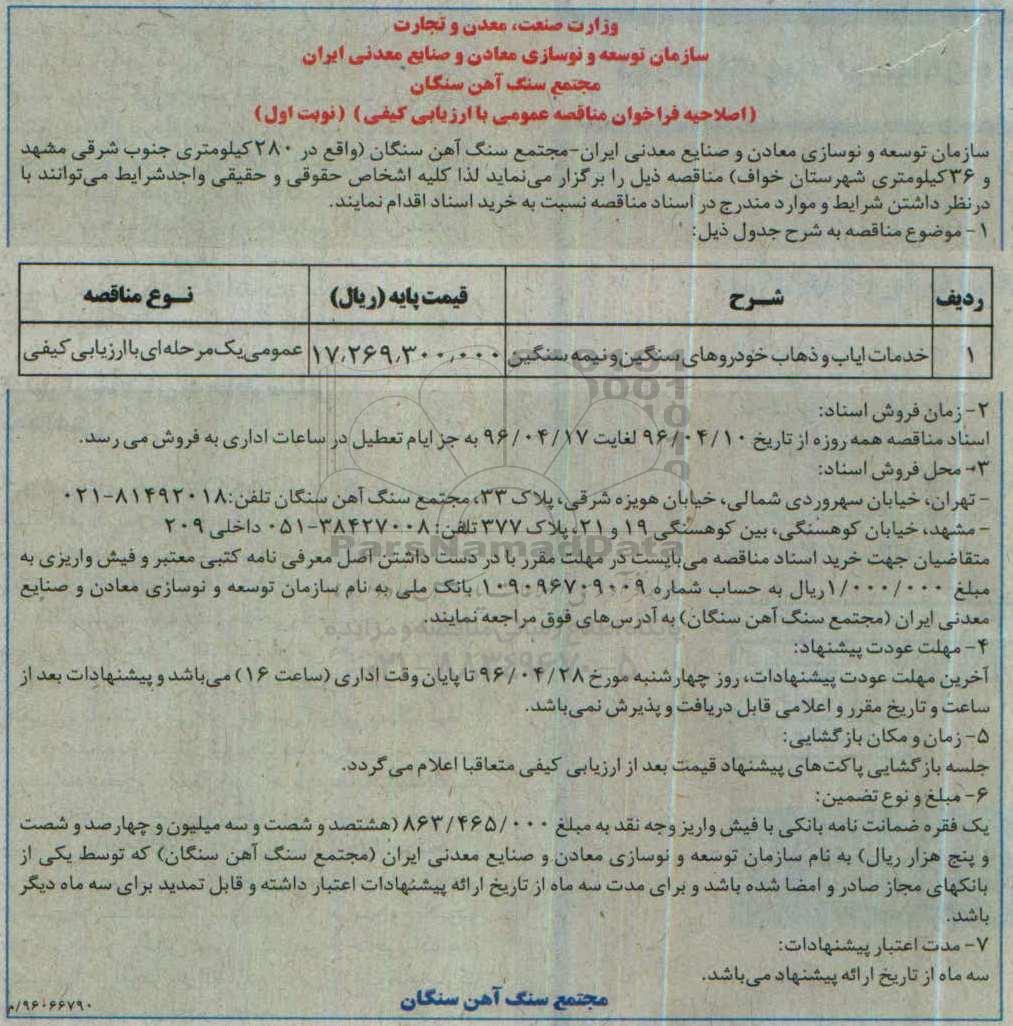 وزارت صنعت، معدن و تجارت
سازمان توسعه و نوسازی معادن و صنایع معدنی ایران
مجتمع سنگ آهن سنگان
(اصلاحیه فراخوان مناقصه عمومی با ارزیابی کیفی) (نوبت اول)
سازمان توسعه و نوسازی معادن و صنایع معدنی ایران-مجتمع سنگ آهن سنگان (واقع در ۲۸۰ کیلومتری جنوب شرقی مشهد
و ۳۶ کیلومتری شهرستان خواف) مناقصه ذیل را برگزار می‌نماید لذا کلیه اشخاص حقوقی و حقیقی واجدشرایط می‌توانند با
درنظر داشتن شرایط و موارد مندرج در اسناد مناقصه نسبت به خرید اسناد اقدام نمایند.
۱- موضوع مناقصه به شرح جدول ذیل:
ردیف شرح قیمت پایه (ریال) نوع مناقصه
۱ خدمات ایاب و ذهاب خودروهای سنگین و نیمه سنگین ۱۷,۲۶۹,۳۰۰,۰۰۰ عمومی یک مرحله‌ای با ارزیابی کیفی
۲- زمان فروش اسناد:
اسناد مناقصه همه روزه از تاریخ ۹۶/۰۴/۱۰ لغایت ۹۶/۰۴/۱۷ به جز ایام تعطیل در ساعات اداری به فروش می رسد.
۳- محل فروش اسناد:
- تهران، خیابان سهروردی شمالی، خیابان هویزه شرقی، پلاک ۳۳، مجتمع سنگ آهن سنگان تلفن: ۸۱۴۹۲۰۱۸-۰۲۱
- مشهد، خیابان کوهسنگی، بین کوهسنگی ۱۹ و ۲۱، پلاک ۳۷۷ تلفن: ۳۸۴۲۷۰۰۸-۰۵۱ داخلی ۲۰۹
متقاضیان جهت خرید اسناد مناقصه می‌بایست در مهلت مقرر با در دست داشتن اصل معرفی نامه کتبی معتبر و فیش واریزی به
مبلغ ۱/۰۰۰/۰۰۰ ریال به حساب شماره ۰۱۰۹۰۹۶۷۰۹۰۰۹ بانک ملی به نام سازمان توسعه و نوسازی معادن و صنایع
معدنی ایران (مجتمع سنگ آهن سنگان) به آدرس‌های فوق مراجعه نمایند.
۴- مهلت عودت پیشنهاد:
آخرین مهلت عودت پیشنهادات، روز چهارشنبه مورخ ۹۶/۰۴/۲۸ تا پایان وقت اداری (ساعت ۱۶) می‌باشد و پیشنهادات بعد از
ساعت و تاریخ مقرر و اعلامی قابل دریافت و پذیرش نمی‌باشد.
۵- زمان و مکان بازگشایی:
جلسه بازگشایی پاکت‌های پیشنهاد قیمت بعد از ارزیابی کیفی متعاقبا اعلام می گردد.
۶- مبلغ و نوع تضمین:
یک فقره ضمانت نامه بانکی با فیش واریز وجه نقد به مبلغ ۸۶۳/۴۶۵/۰۰۰ (هشتصد و شصت و سه میلیون و چهارصد و شصت
و پنج هزار ریال) به نام سازمان توسعه و نوسازی معادن و صنایع معدنی ایران (مجتمع سنگ آهن سنگان) که توسط یکی از
بانکهای مجاز صادر و امضا شده باشد و برای مدت سه ماه از تاریخ ارائه پیشنهادات اعتبار داشته و قابل تمدید برای سه ماه دیگر
باشد.
۷- مدت اعتبار پیشنهادات:
سه ماه از تاریخ ارائه پیشنهاد می‌باشد.
مجتمع سنگ آهن سنگان
۹۶۰۶۶۷۹۰/م
ParsNamadData